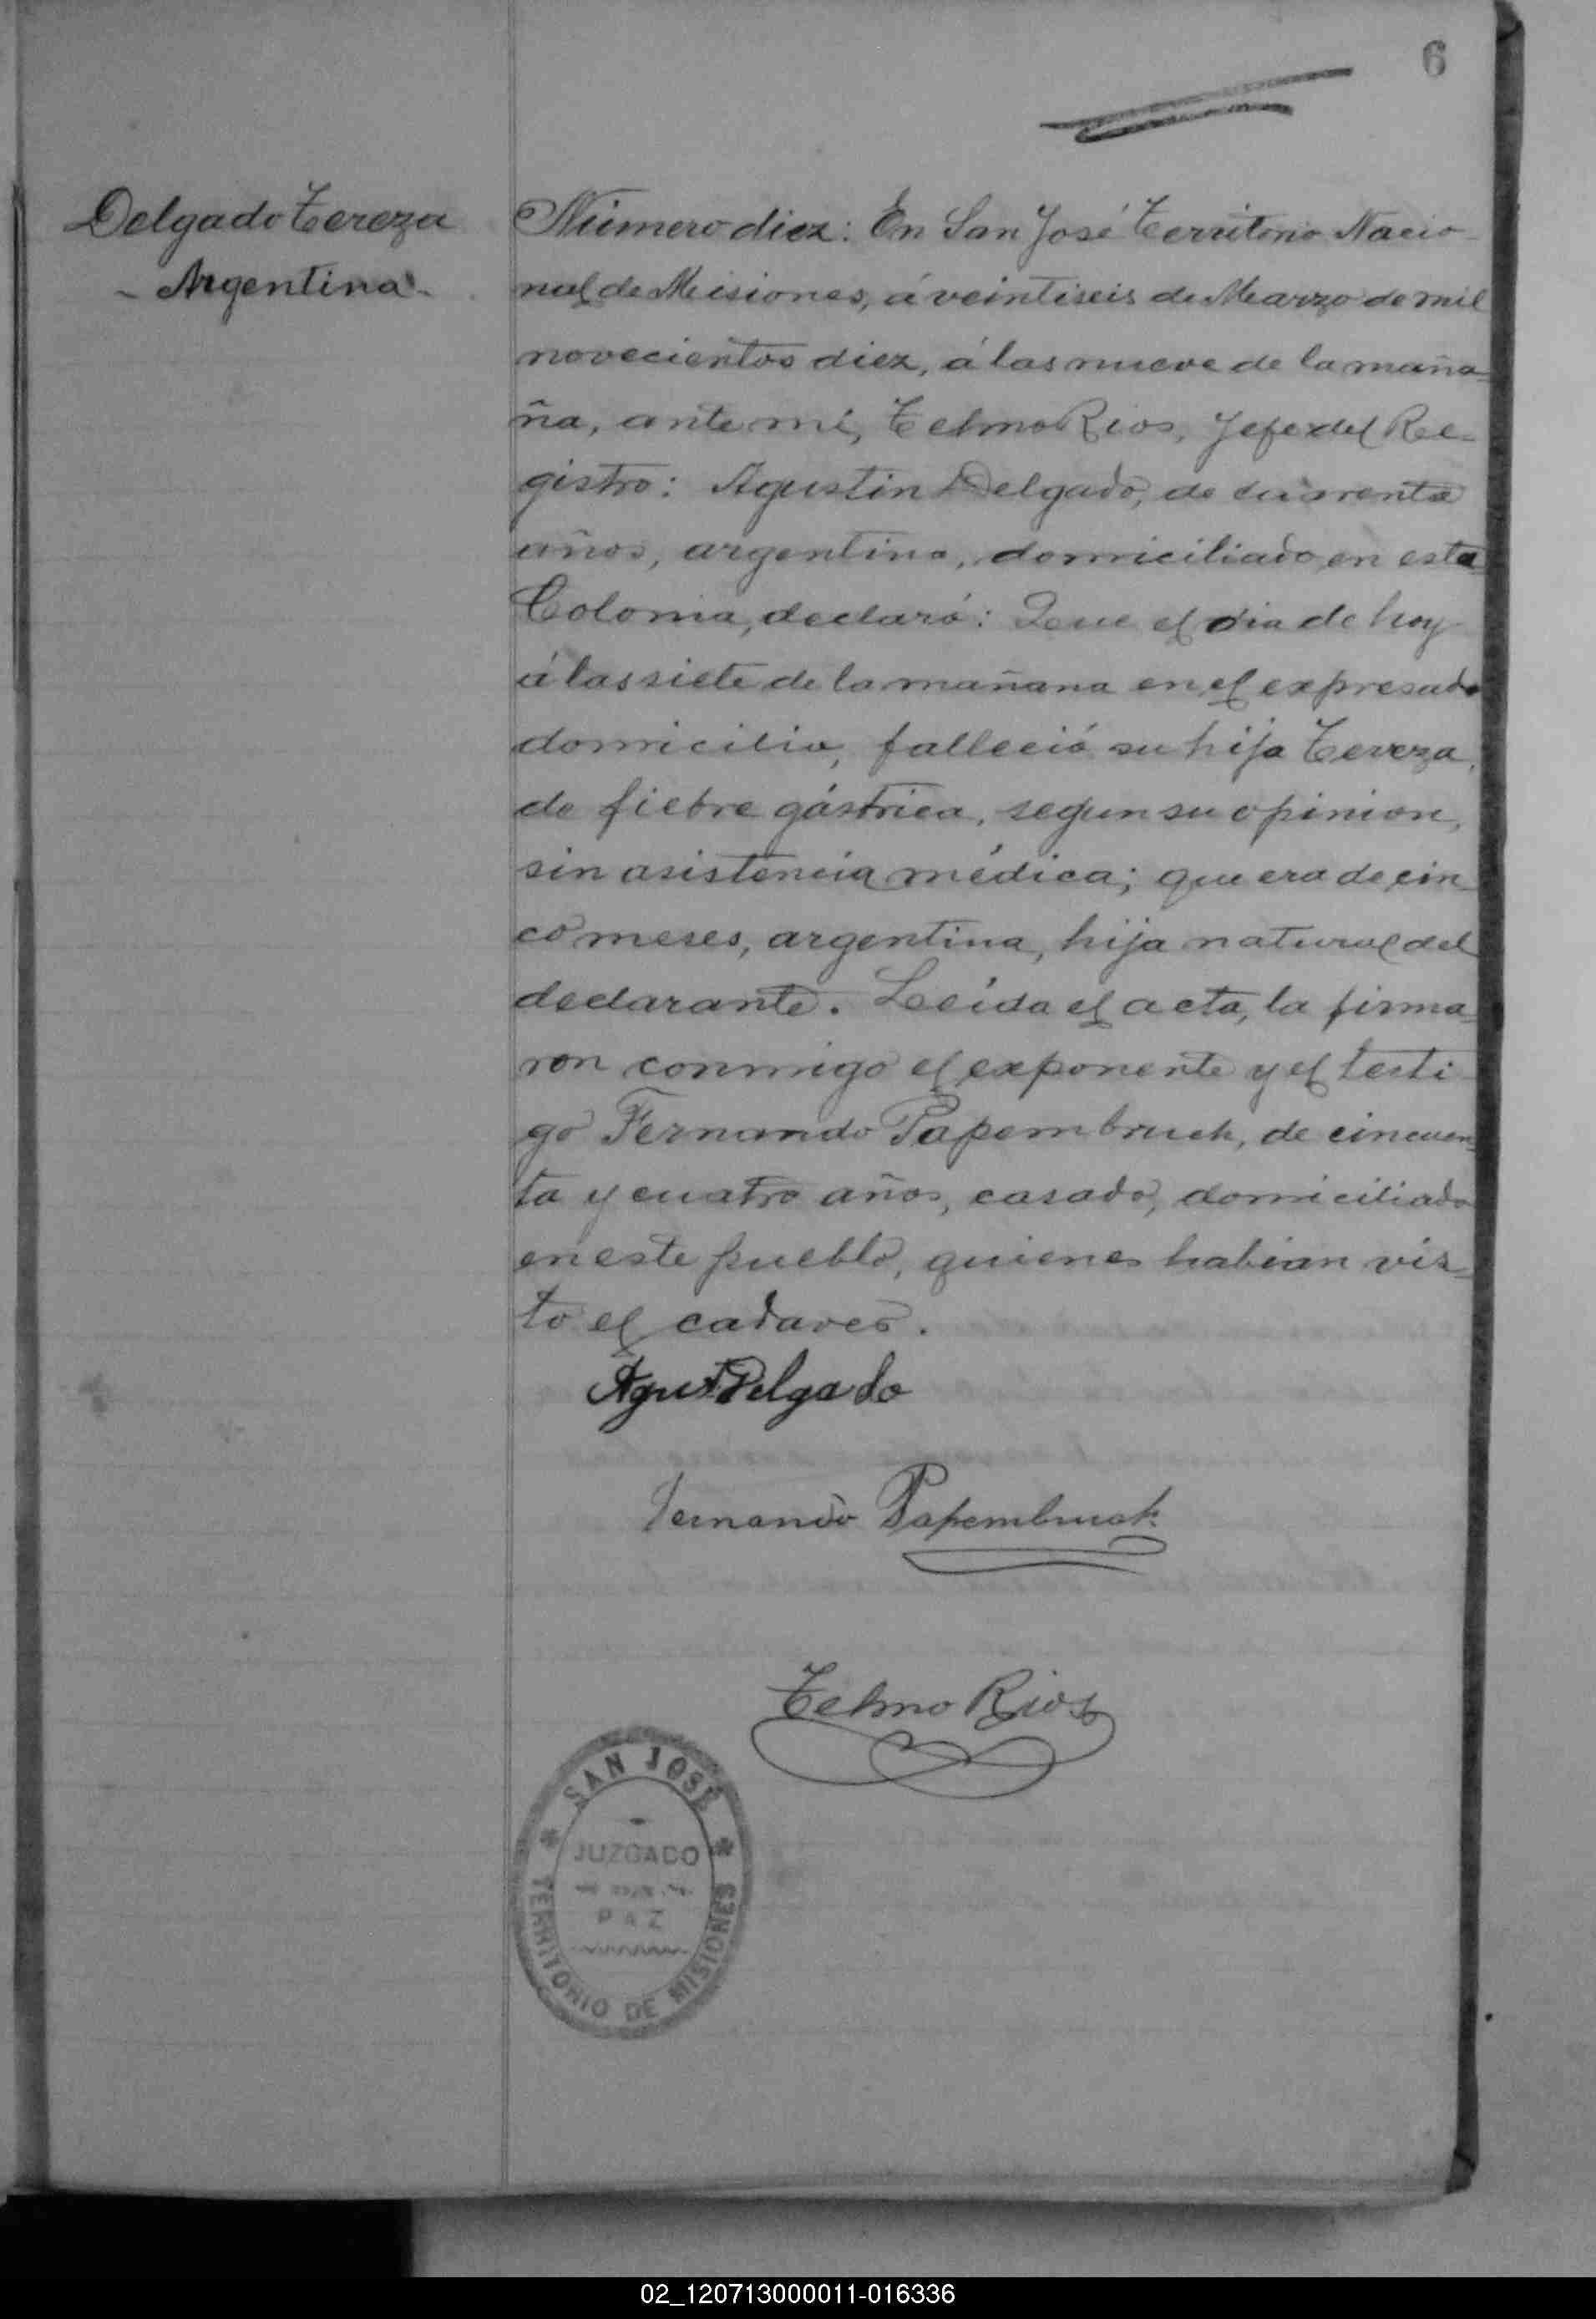 6
Delgado Tereza
- Argentina -
Número diez: En San José Territorio Nacio-
nal de Misiones, á veintiseis de Marzo de mil
novecientos diez, á las nueve de la maña-
ña, ante mi, Telmo Rios, Jefe del Re-
gistro: Agustin Delgado, de cuarenta
años, argentino, domiciliado en esta
Colonia, declaró: Que el dia de hoy
á las siete de la mañana en el expresado
domicilio, falleció su hija Tereza,
de fiebre gástrica, segun su opinion,
sin asistencia médica; que era de cin-
co meses, argentina, hija natural del
declarante. Leída el acta, la firma-
ron conmigo el exponente y el testi-
go Fernando Papembruch, de cincuen-
ta y cuatro años, casado, domiciliado
en este pueblo, quienes habian vis-
to el cadaver.
Agust Delgado
Fernando Papembruch
Telmo Rios
SAN JOSÉ
JUZGADO
PAZ
TERRITORIO DE MISIONES
02_120713000011-016336